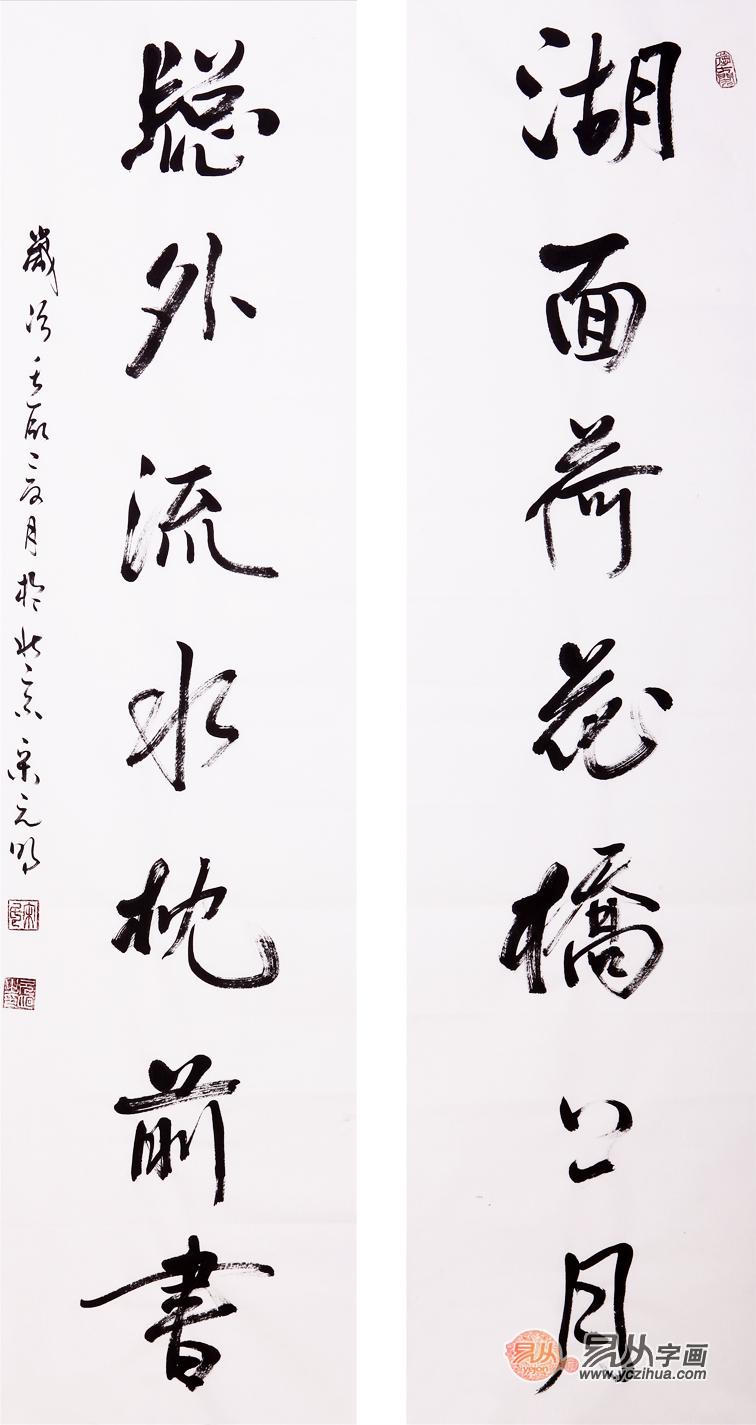 湖面荷花橋上月
牕外流水枕前書
歲次壬辰夏月於北京宋元明
易从
易从字画
www.yczihua.com